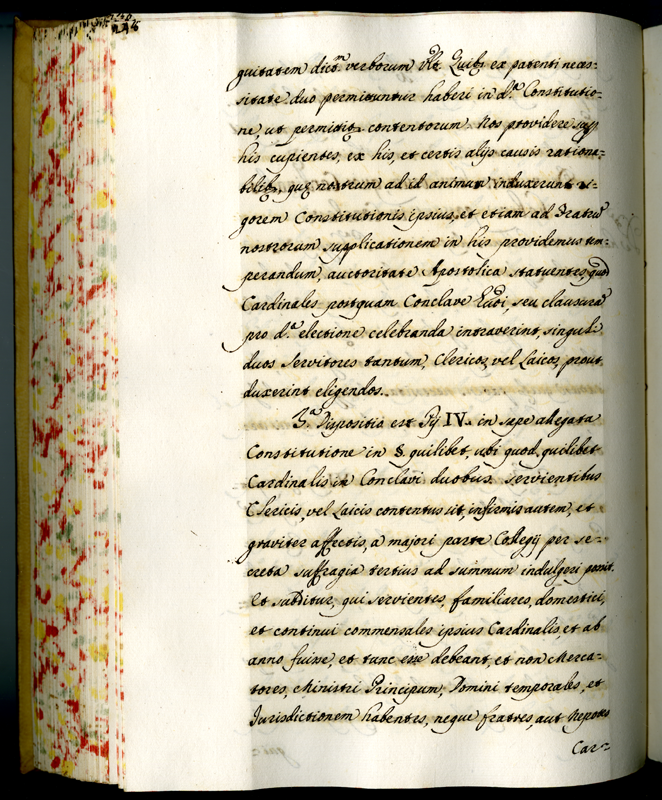 guitatem dict.m verborum
Quibz ex patenti neces-
sitate duo permittuntur haberi in d.a Constitutio-
ne, ut permittitr contentorum Nos providere sup
his cupientes, ex his, et certis alijs causis rationa-
bilibz, quæ nostrum ad id animum induxerunt ri-
gorem Constitutionis ipsius, et etiam ad Fratrũ
nostrorum supplicationem in his providimus tem-
perandum, auctoritate Apostolica statuentes, quod
Cardinales postquam Conclave seu clausurã
pro d.a electione celebranda intraverint, singuli
duos servitores tantum, Clericos, vel Laicos, prout
duxerint eligendos.
3.a Dispositio est Pij IV. in sæpe allegata
Constitutione in §. quilibet, ubi quod quilibet
Cardinalis in Conclavi duobus servientibus
Clericis, vel Laicis contentus sit, infirmis autem, et
graviter affectis, a majori parte Collegij per se-
creta suffragia tertius ad summum indulgeri possit.
Et subditur, qui servientes, familiares, domestici,
et continui commensales ipsius Cardinalis, et ab
anno fuisse, et tunc esse debeant, et non Merca-
tores, Ministri Principum, Domini temporales, et
Jurisdictionem habentes, neque fratres, aut Nepotes
Car-